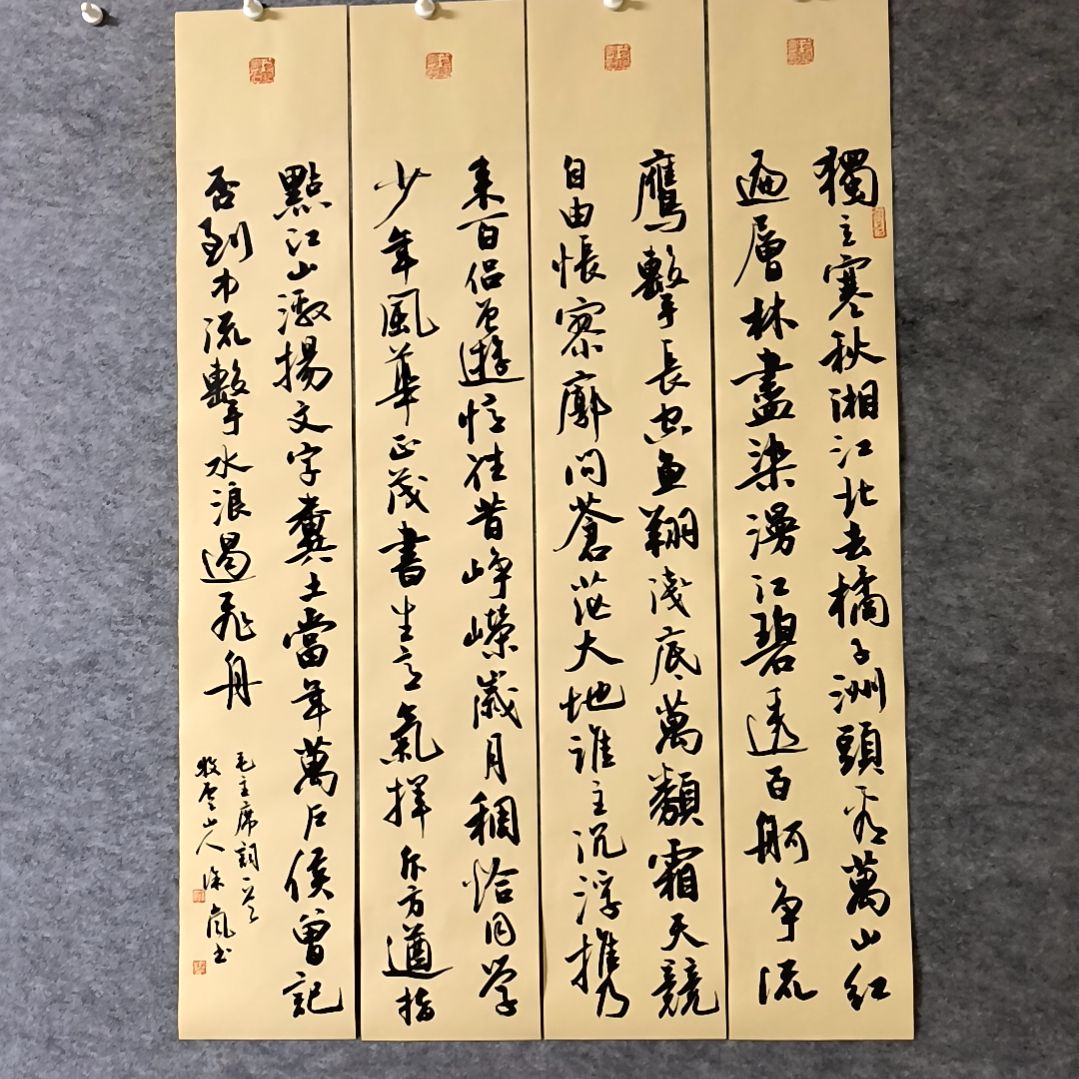 獨立寒秋湘江北去橘子洲頭看萬山紅
遍層林盡染漫江碧透百舸争流
鷹擊長空魚翔淺底萬類霜天競
自由悵寥廓問蒼茫大地誰主沉浮携
来百侣曾遊憶往昔峥嶸歲月稠恰同学
少年風華正茂書生意氣揮斥方遒指
點江山激揚文字糞土當年萬户侯曾記
否到中流擊水浪遏飛舟
毛主席詞一首
牧雲山人岚书